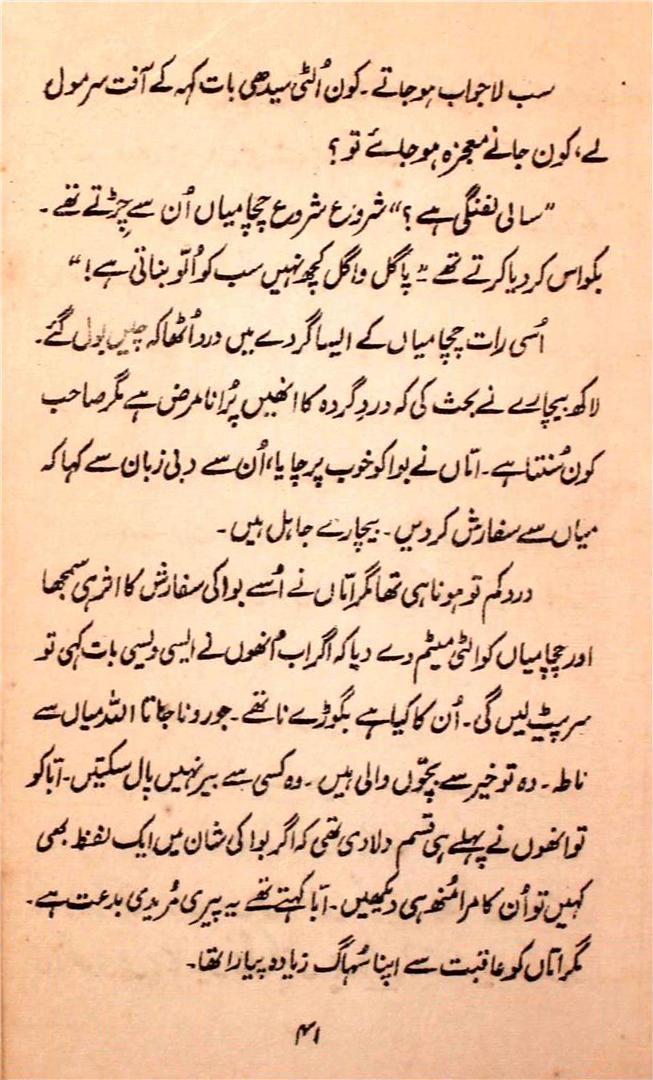 سب لاجواب ہوجاتے۔ کون اُلٹی سیدھی بات کہہ کے آفت سر مول
لے، کون جانے معجزہ ہوجائے تو؟
”سالی لفنگی ہے؟“ شروع شروع چچا میاں اُن سے چِڑتے تھے۔
بکواس کردیا کرتے تھے ”پاگل واگل کچھ نہیں سب کو اُلّو بناتی ہے!“
اُسی رات چچا میاں کے ایسا گردے میں درد اُٹھا کہ چیں بول گئے۔
لاکھ بیچارے نے بحث کی کہ دردِ گردہ کا انھیں پُرانا مرض ہے مگر صاحب
کون سُنتا ہے۔ امّاں نے بوا کو خوب پرچایا، اُن سے دبی زبان سے کہا کہ
میاں سے سفارش کردیں۔ بیچارے جاہل ہیں۔
درد کم تو ہونا ہی تھا مگر امّاں نے اُسے بوا کی سفارش کا اثر ہی سمجھا
اور چچا میاں کو الٹی میٹم دے دیا کہ اگر اب اُنھوں نے ایسی ویسی بات کہی تو
سر پیٹ لیں گی۔ اُن کا کیا ہے نگوڑے ناٹھے۔ جورو نا جاتا اللہ میاں سے
ناطہ۔ وہ تو خیر سے بچّوں والی ہیں۔ وہ کسی سے بیر نہیں پال سکتیں۔ ابّا کو
تو انھوں نے پہلے ہی قسم دلا دی تھی کہ اگر بوا کی شان میں ایک لفظ بھی
کہیں تو اُن کا مرا مُنھ ہی دیکھیں۔ ابّا کہتے تھے یہ پیری مُریدی بدعت ہے۔
مگر امّاں کو عاقبت سے اپنا سُہاگ زیادہ پیارا تھا۔
۴۱